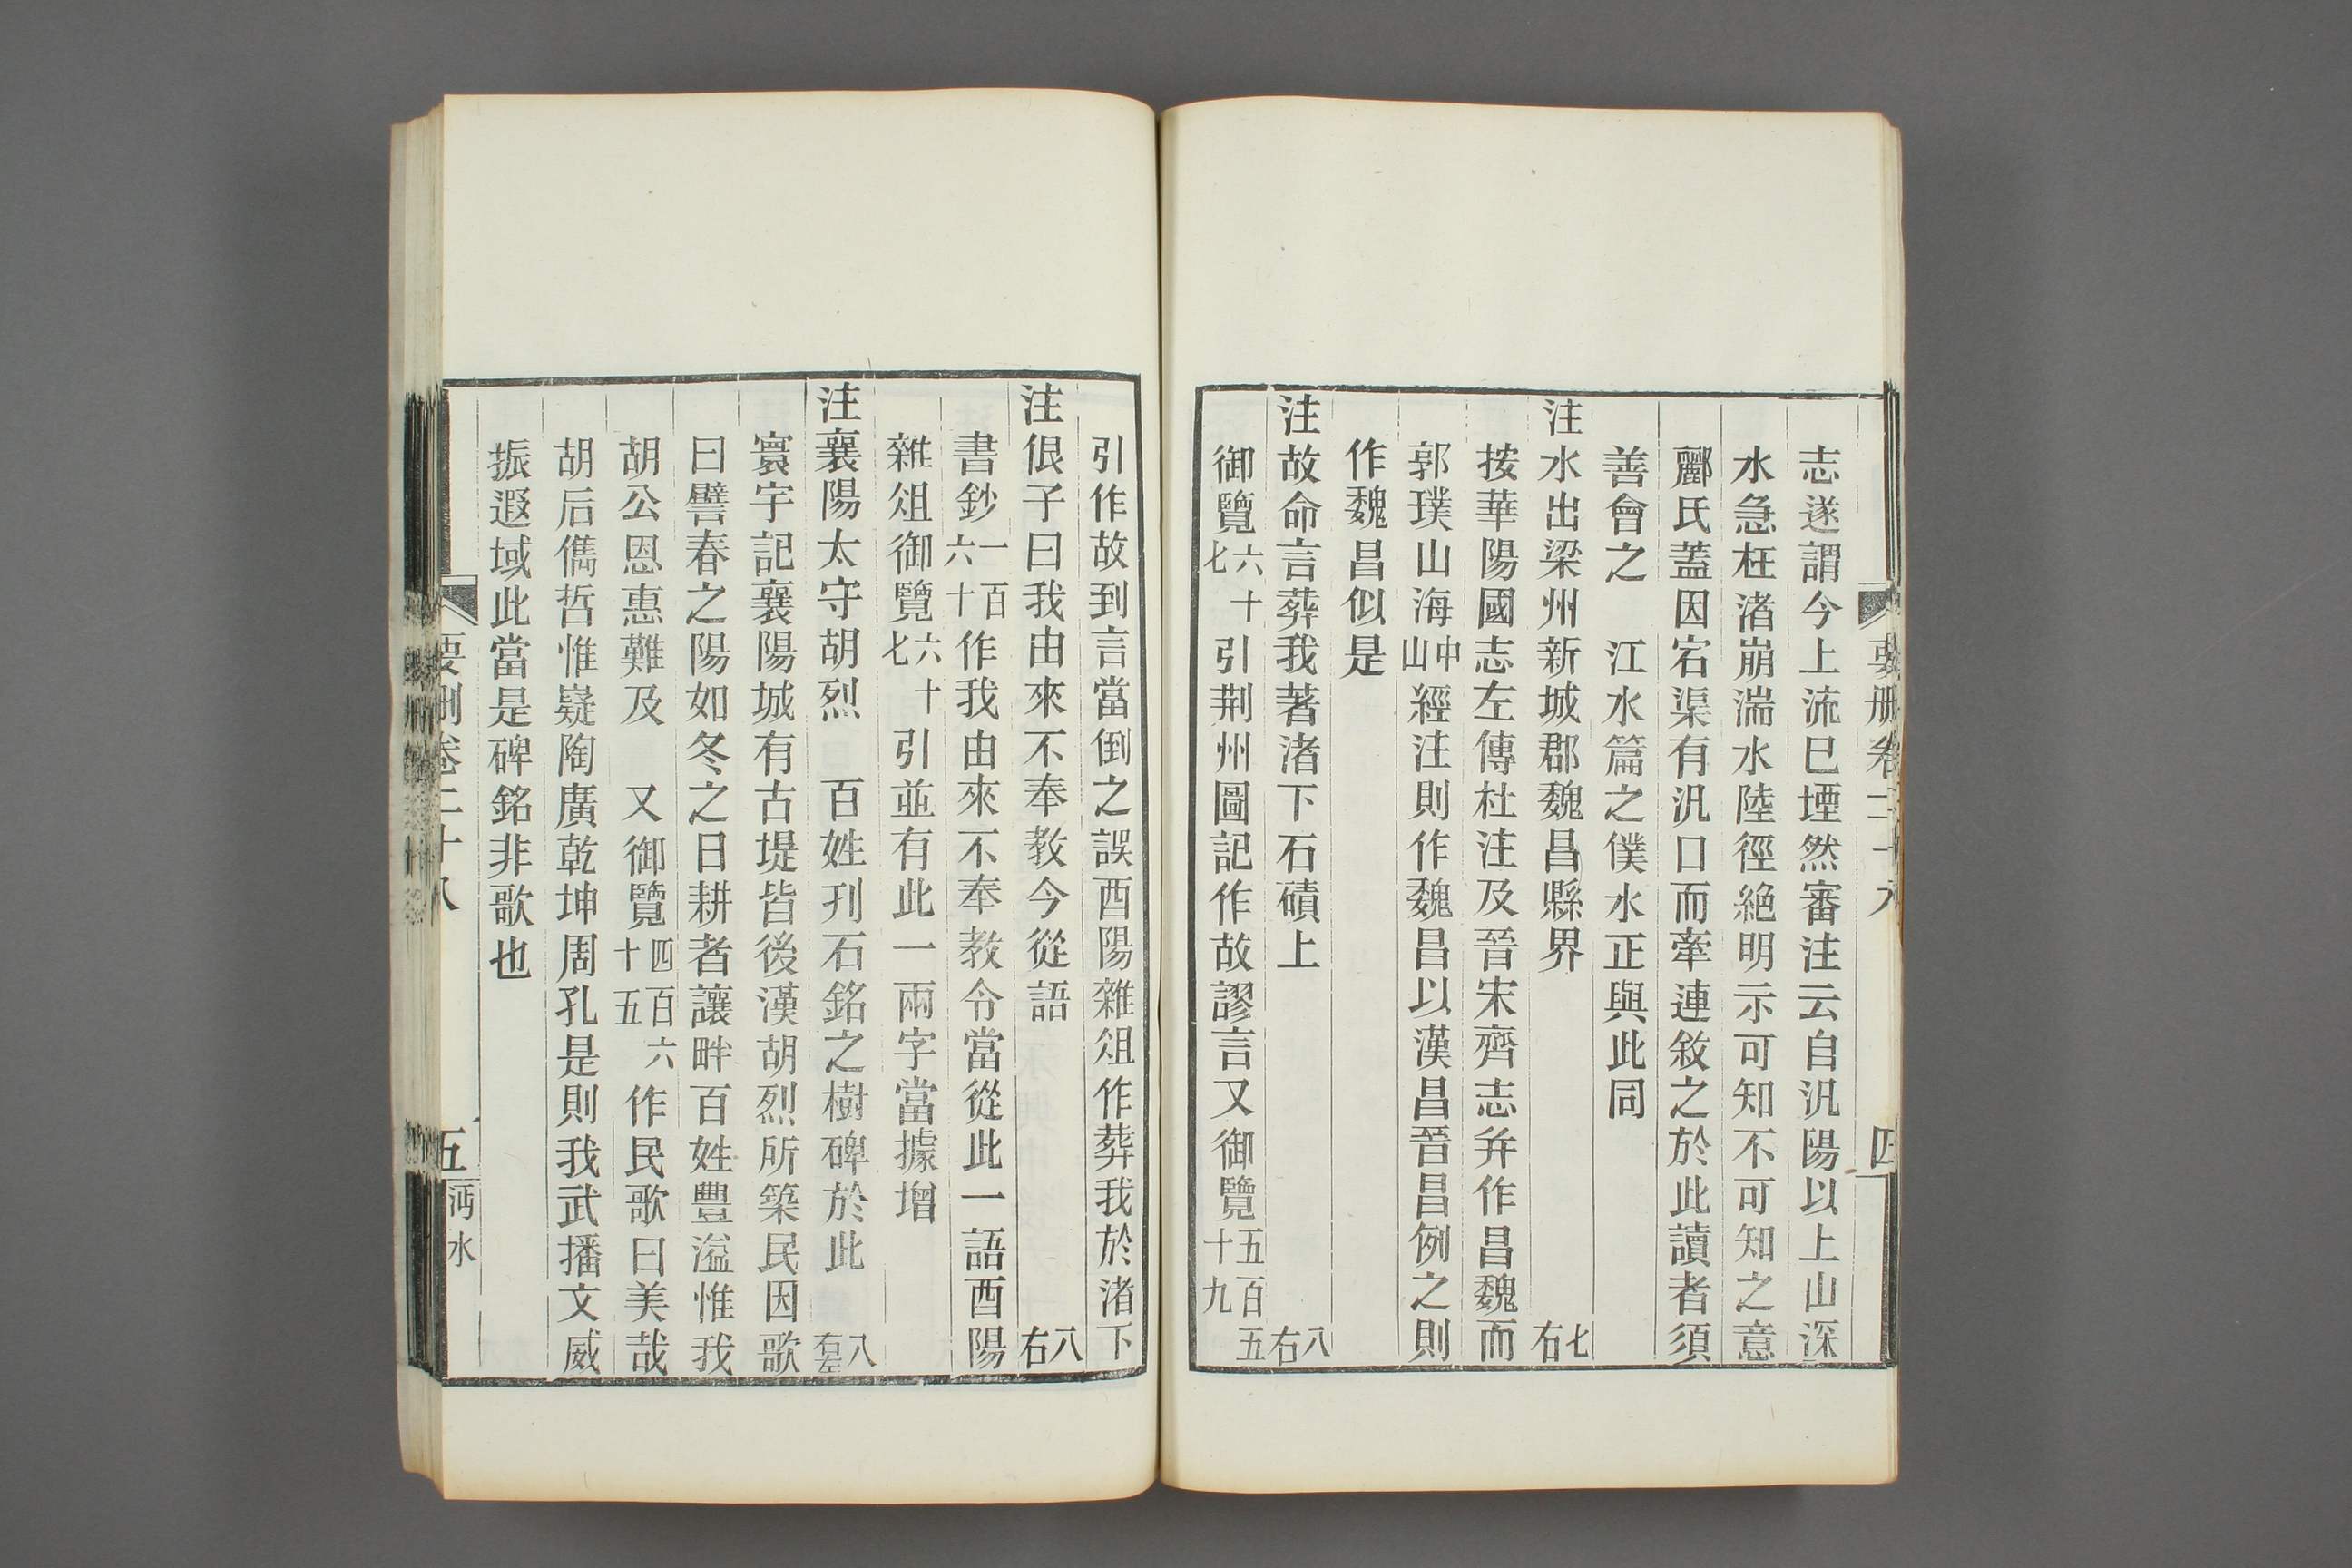 要删卷二十八　四
志遂謂今上流已堙然審注云自汎陽以上山深
水急枉渚崩湍水陸徑絶明示可知不可知之意
酈氏蓋因宕渠有汎口而牽連敘之於此讀者須
善會之　江水篇之僕水正與此同
注水出梁州新城郡魏昌縣界　七右
按華陽國志左傳杜注及晉宋齊志并作昌魏而
郭璞山海中山經注則作魏昌以漢昌晉昌例之則
作魏昌似是
注故命言葬我著渚下石磧上　八右
御覽六十七引荆州圖記作故謬言又御覽五百五十九
引作故到言當倒之誤酉陽雜俎作葬我於渚下
注佷子曰我由來不奉教今從語　八右
書鈔一百六十作我由來不奉教令當從此一語酉陽
雜俎御覽六十七引並有此一兩字當據增
注襄陽太守胡烈　百姓刋石銘之樹碑於此　八右左
寰宇記襄陽城有古堤皆後漢胡烈所築民因歌
曰譬春之陽如冬之日耕者讓畔百姓豐溢惟我
胡公恩惠難及　又御覽四百六十五作民歌曰美哉
胡后儁哲惟嶷陶廣乾坤周孔是則我武播文威
振遐域此當是碑銘非歌也
要删卷二十八　五　沔水